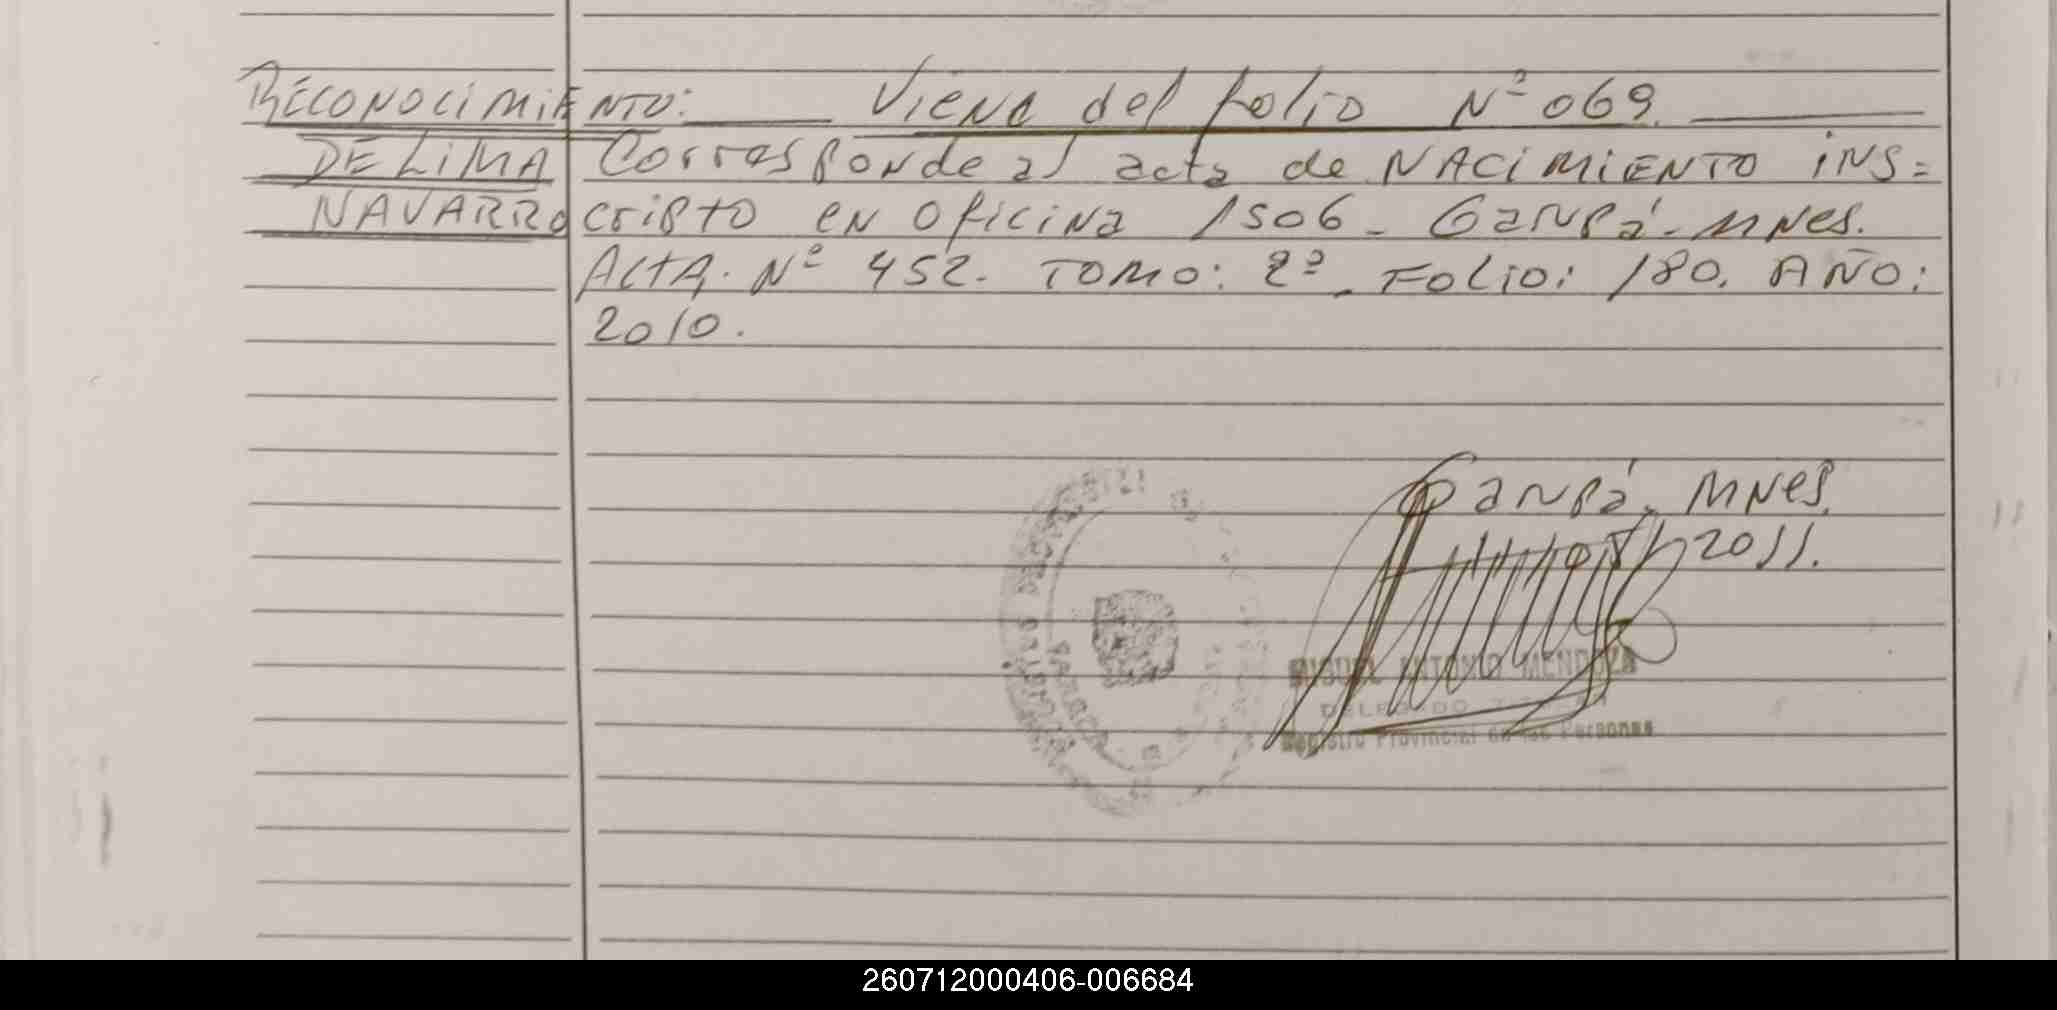 RECONOCIMIENTO: Viene del folio Nº 069.
DE LIMA Corresponde al acta de NACIMIENTO INS=
NAVARRO cripto en oficina 1506 - Garupá - MNES.
ACTA. Nº 452. TOMO: 2º. FOLIO: 180. AÑO:
2010.
Garupá. MNES.
2011.
MIGUEL ANTONIO MENDOZA
DELEGADO
Registro Provincial de las Personas
260712000406-006684